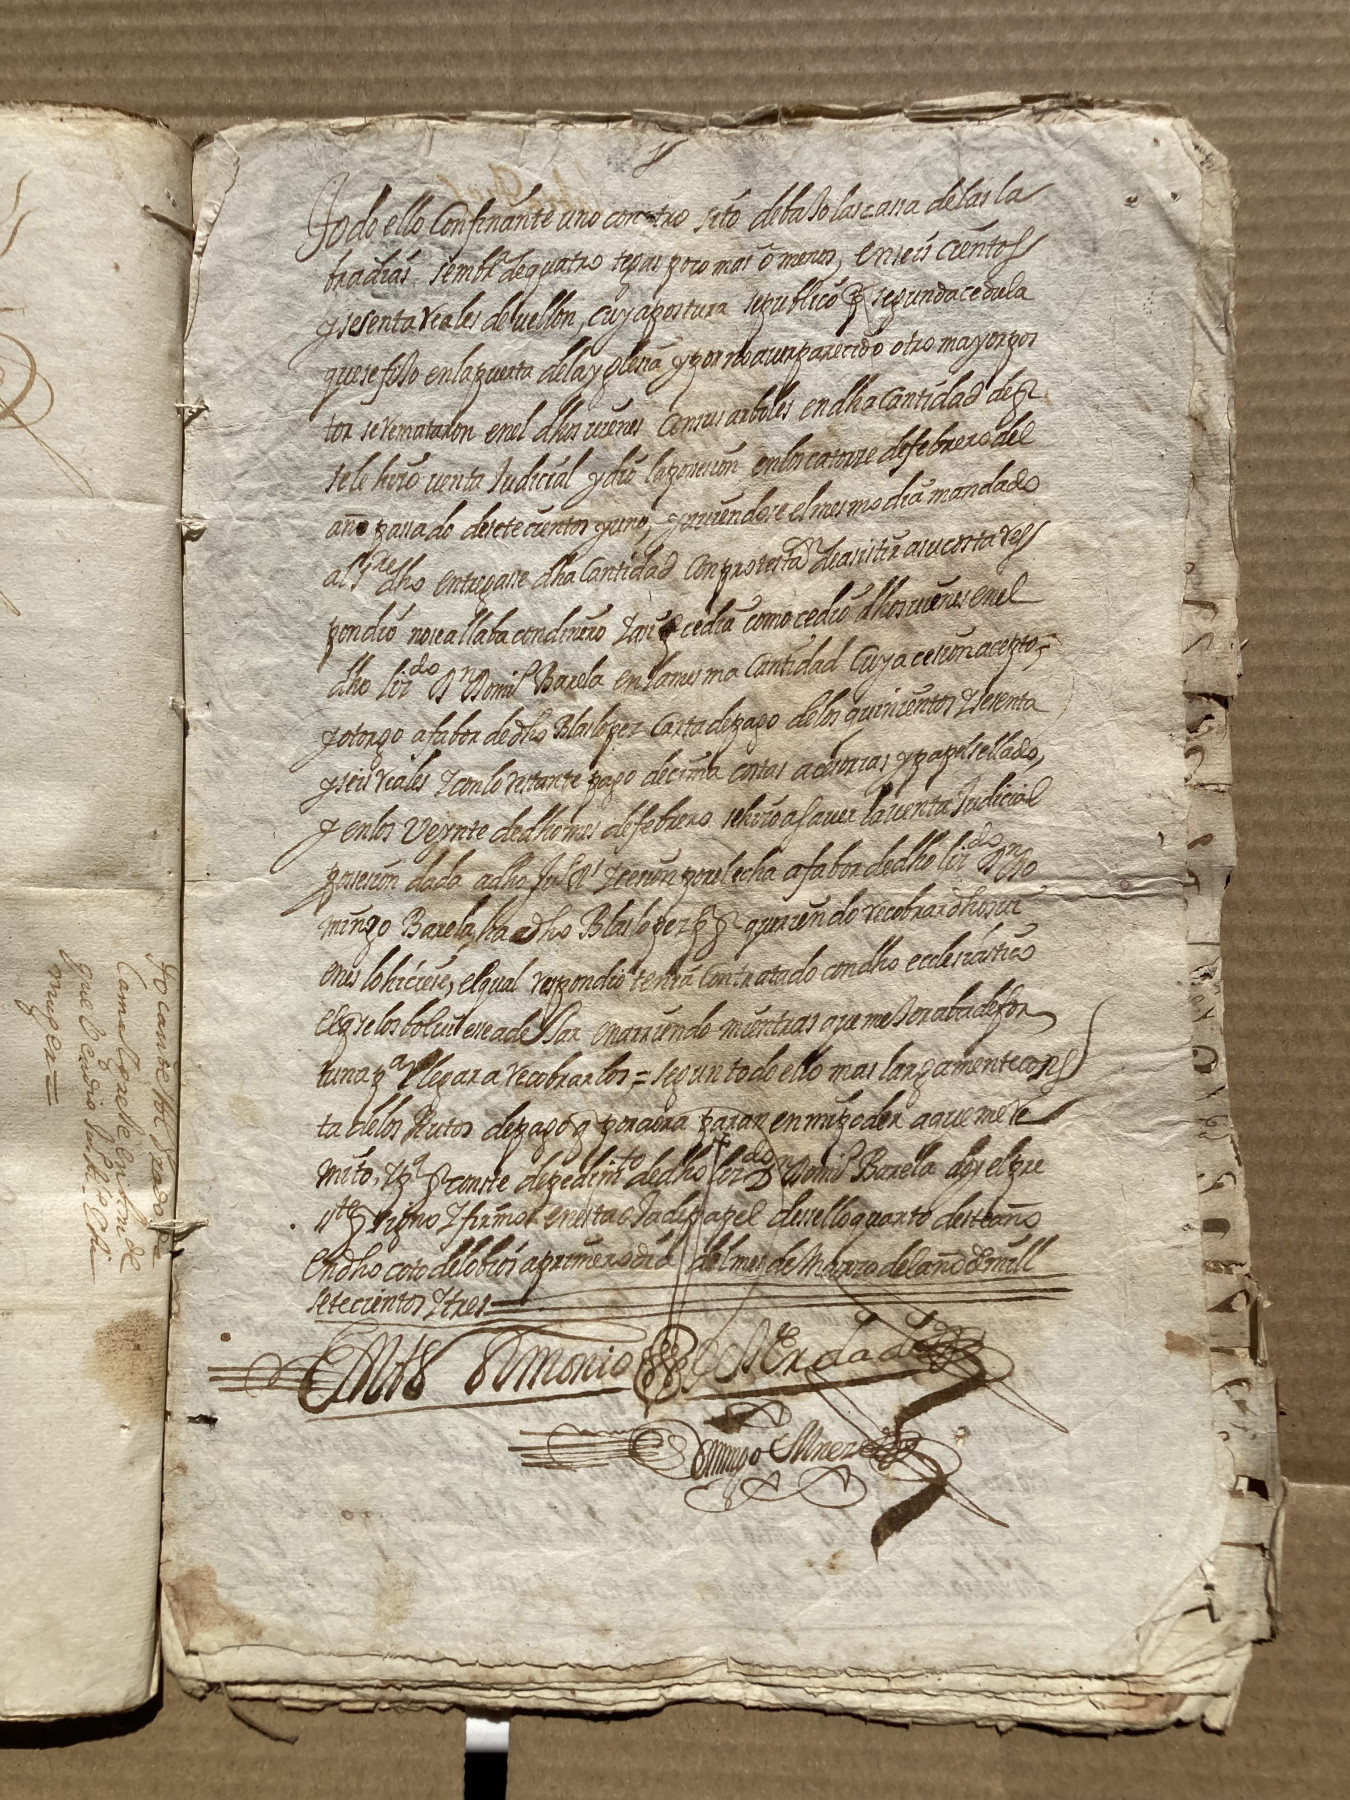 todo ello Confinante uno con otro sito debaJo las casa de las la
bradias sembr.ª de quatro tegas poco mas o menos, en seis cientos
y sesenta reales de vellon, cuya postura se publico segunda cedula
que se fiJo en la puerta de la yglesia y por no auer parecido otro mayor pos
tor se remataron en el dhos vienes Con sus arboles en dha Cantidad de
se le hiço venta Judicial y dio la posesion en los catorze de febrero del
año pasado de sete cientos y uno, y auiendose el mesmo dia mandado
al dho entregasse dha Cantidad Con protesta de asistir a su costa res
pondio no se allaba con dinero cedia como cedio dhos vienes en el
dho liz.do D.n Dom.o Barela en la mesma Cantidad Cuya cesion acepto
y otorgo a fabor de dho Blas lopez Carta de pago de los quinientos y sesenta
y seis reales y con lo restante pago decima costas acesorias y papel sellado,
y en los Veynte de dho mes de febrero se hiço a sauer la venta Judicial
posesion dada a dho y cesion por el echa a fabor de dho liz.do D.n Do
mingo Barela, ha dho Blas lopez queriendo recobrar dhos vi
enes lo hiciese, el qual respondio tenia Contratado con dho ecclesiastico
el q se los bolviese a deJar en arriendo mientras que meJoraba de for
tuna p.ª llegar a recobrarlos = segun todo ello mas largamente cons
ta de los Autos de pago q por aora paran en mi poder a que me re
mito, y p.ª q conste de pedim.to de dho liz.do D.n Dom.o Barela doy el pre
s.te q signo y firmo en esta oJa de papel de sello quarto deste año
en dho coto de lobios a primero dia del mes de Março del año de mill
setecientos y tres
En testimonio de Verdad
Domingo
tocante
muger =